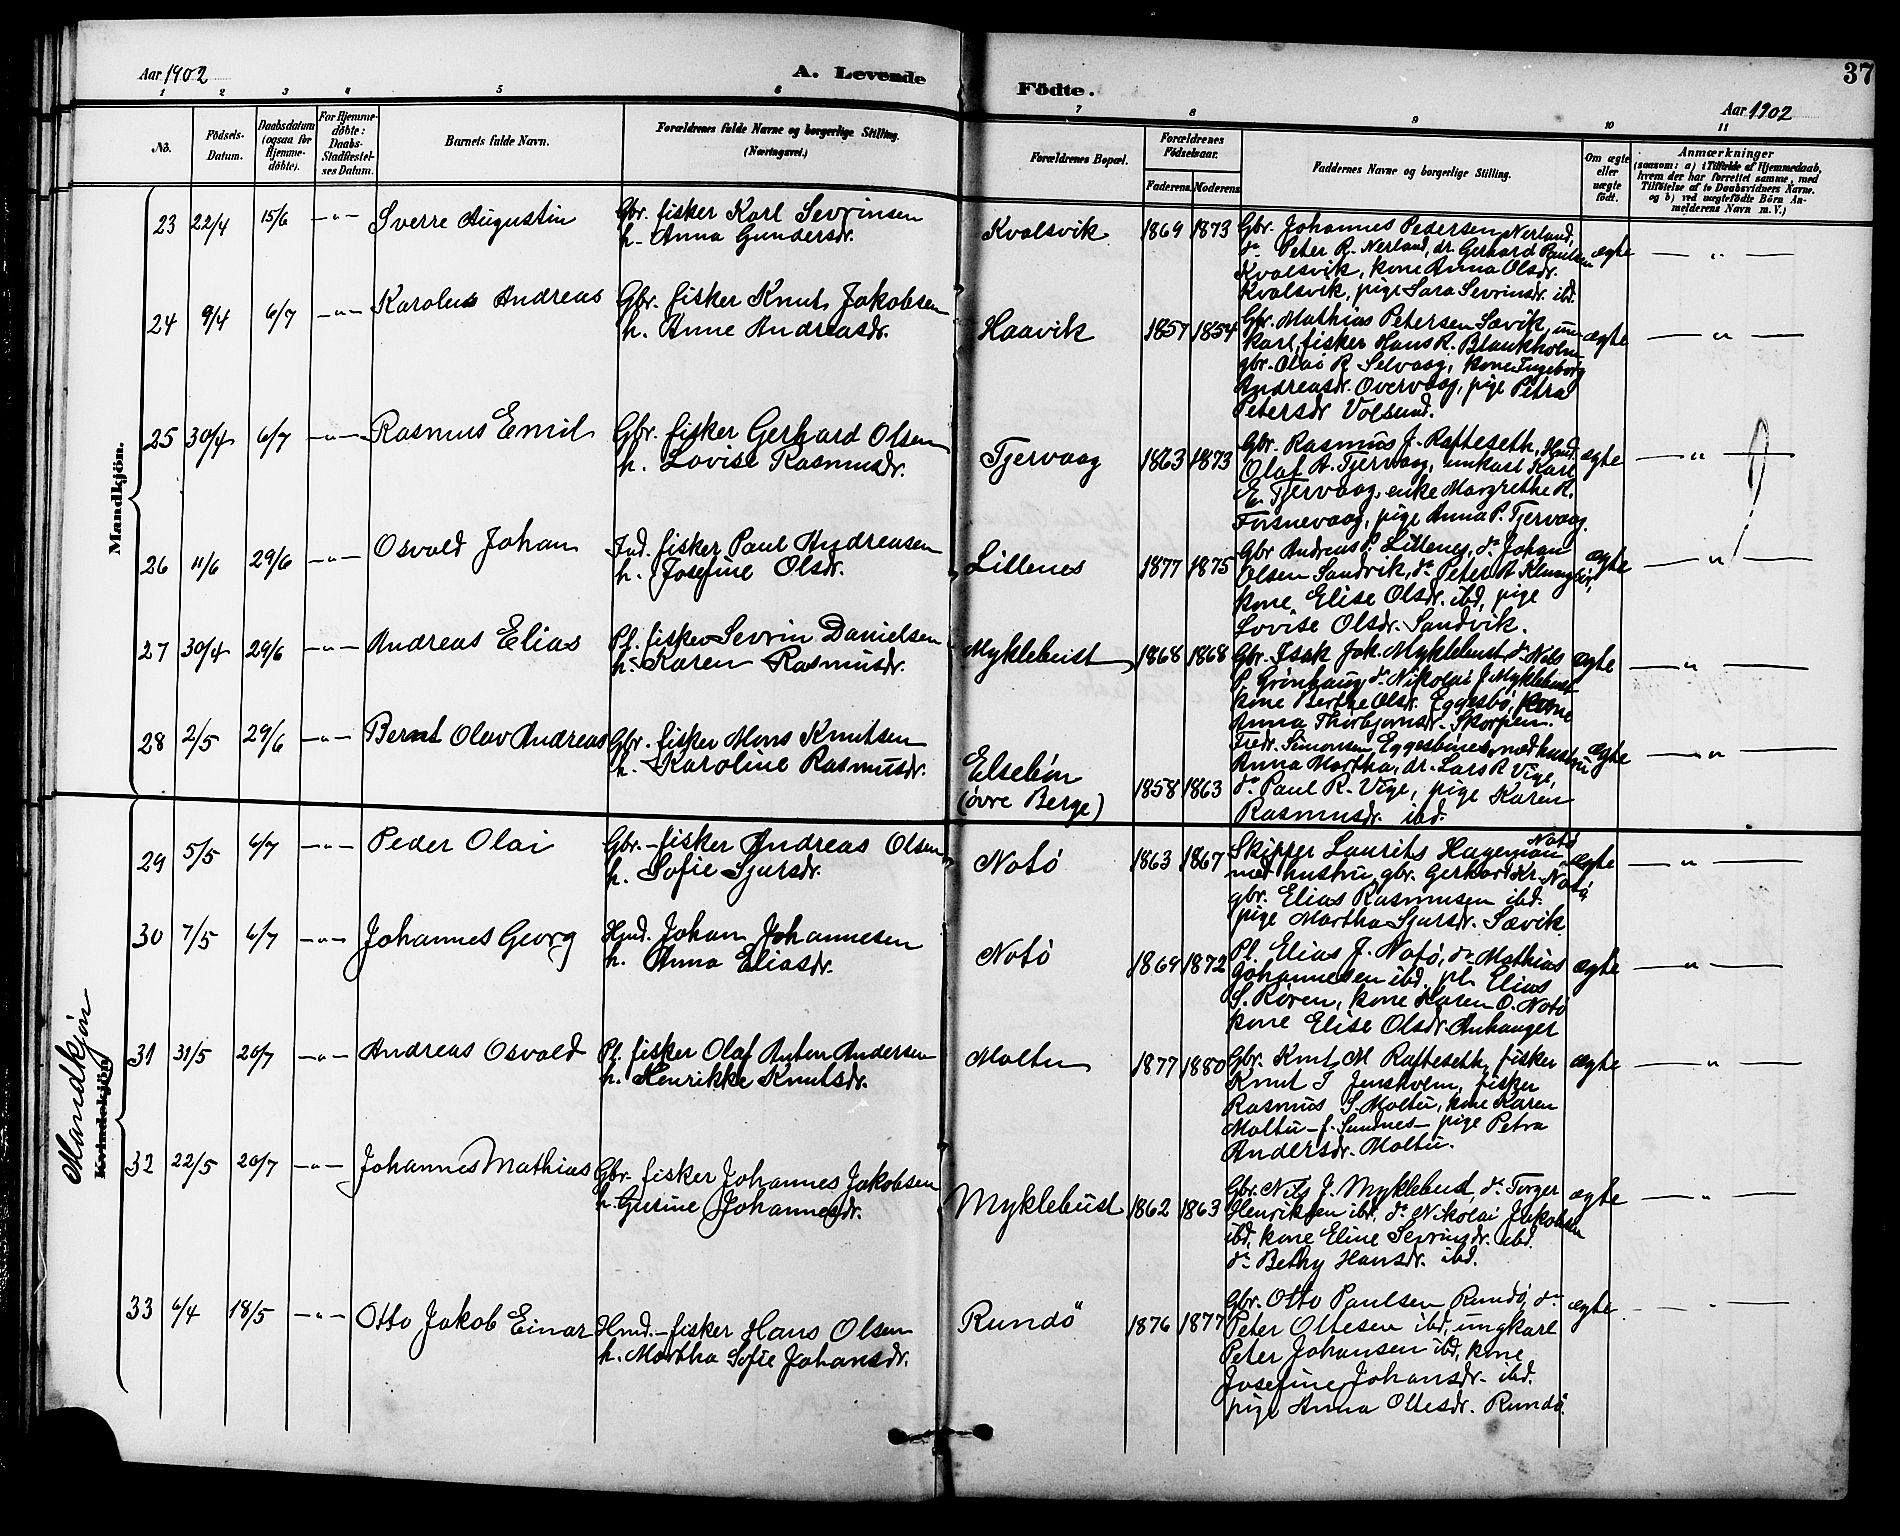 Aar 1902
A. Levende Födte.
37
Aar 1902
1 2 3 4 5 6 7 8 9 10 11
No.
Födsels-Datum.
Daabsdatum (ogsaa for Hjemme-döbte).
For Hjemme-döbte: Daabs-Stadfæstel-ses Datum.
Barnets fulde Navn.
Forældrenes fulde Navne og borgerlige Stilling.
(Næringsvei.)
Forældrenes Bopæl.
Forældrenes Födselsaar.
Faderens. Moderens.
Faddernes Navne og borgerlige Stilling.
Om ægte eller uægte födt.
Anmærkninger
(saasom: a) i Tilfælde af Hjemmedaab,
hvem der har forrettet samme, med
Tilföielse af to Daabsvidners Navne.
og b) ved uægtefödte Börn An-
melderens Navn m. V.)
Mandkjön.
23 22/4 15/6 —"— Sverre Augustin
Gbr. fisker Karl Sevrinsen
h. Anna Gundersdr.
Kvalsvik 1869 1873
Gbr. Johannes Pedersen Nerland,
do Peter R. Nerland, do. Gerhard Paulsen
Kvalsvik, kone Anna Olsdr.
Kvalsvik, pige Sara Sevrinsdr. ibd.
ægte — " —
24 9/4 6/7 —"— Karolus Andreas
Gbr. fisker Knut Jakobsen
h. Anne Andreasdr.
Haavik 1857 1854
Gbr. Mathias Petersen Sævik, un
karl, fisker Hans R. Blankholm
gbr. Olai R Selvaag, kone Ingeborg
Andreasdr. Overvaag, pige Petra
Petersdr Volsund.
ægte — " —
25 30/4 6/7 —"— Rasmus Emil
Gbr. fisker Gerhard Olsen
h. Lovise Rasmusdr.
Tjervaag 1863 1873
Gbr. Rasmus J. Rafteseth, Hmd.
Olaf A. Tjervaag, umkarl Karl
E. Tjervaag, enke Margrethe R.
Fosnevaag, pige Anna P. Tjervaag.
ægte — " —
26 11/6 29/6 —"— Osvald Johan
Ind. fisker Paul Andreasen
h. Josefine Olsdr.
Lillenes 1877 1875
Gbr Andreas P. Lillenes, do Johan
Olsen Sandvik, do Peter A Klungsör,
kone Elise Olsdr. ibd, pige
Lovise Olsdr. Sandvik.
ægte — " —
27 30/4 29/6 —"— Andreas Elias
Pl. fisker Sevrin Danielsen
h. Karen Rasmusdr.
Myklebust 1868 1868
Gbr. Isak Jak. Myklebust, do Nils
P. Grönhaug, do Nikolai J Myklebust
kone Berthe Olsdr. Eggesbö, kone
Anna Thorbjörnsdr. Skorpen.
ægte — " —
28 2/5 29/6 —"— Bernt Olav Andreas
Gbr. fisker Mons Knutsen
h. Karoline Rasmusdr.
Elsebön
(övre Berge) 1858 1863
Fredr. Simonsen Eggesbönes med hustru
Anna Martha, dr. Lars R Vige,
do Paul R. Vige, pige Karen
Rasmusdr. ibd.
ægte — " —
Mandkjön
Kvindekjön
29 5/5 6/7 —"— Peder Olai
Gbr. fisker Andreas Olsen
h. Sofie Sjursdr.
Notö 1863 1867
Skipper Laurits Hageman Notö
med hustru, gbr. Gerhard Kr. Notö
gbr. Elias Rasmusen ibd.
pige Martha Sjursdr. Sævik.
ægte — " —
30 7/5 6/7 —"— Johannes Georg
Hmd. Johan Johannesen
h. Anna Eliasdr.
Notö 1869 1872
Pl. Elias J. Notö, do Mathias
Johannesen ibd, pl. Elias
S. Rören, kone Karen O. Notö
kone Elise Olsdr. Anhauger
ægte — " —
31 31/5 20/7 —"— Andreas Osvald
Pl. fisker Olaf Anton Andersen
h. Henrikke Knutsdr.
Moltu 1877 1880
Gbr. Knut M Rafteseth, fisker
Knut I Jensholm, fisker
Rasmus S. Moltu, kone Karen
Moltu — f. Sundnes — pige Petra
Andersdr. Moltu.
ægte — " —
32 22/5 20/7 —"— Johannes Mathias
Gbr. fisker Johannes Jakobsen
h. Gurine Johannesdr.
Myklebust 1862 1863
Gbr. Nils J. Myklebust, do Torger
Henriksen ibd, do Nikolai Jakobsen
ibd, kone Eline Sevrinsdr. ibd.
do Bethy Hansdr. ibd.
ægte — " —
33 6/4 18/5 —"— Otto Jakob Einar
Hmd. fisker Hans Olsen
h. Martha Sofie Johansdr.
Rundö 1876 1877
Gbr. Otto Paulsen Rundö, do
Peter Ottesen ibd, ungkarl
Peter Johansen ibd, kone
Josefine Johansdr. ibd.
pige Anna Ottesdr. Rundö.
ægte — " —